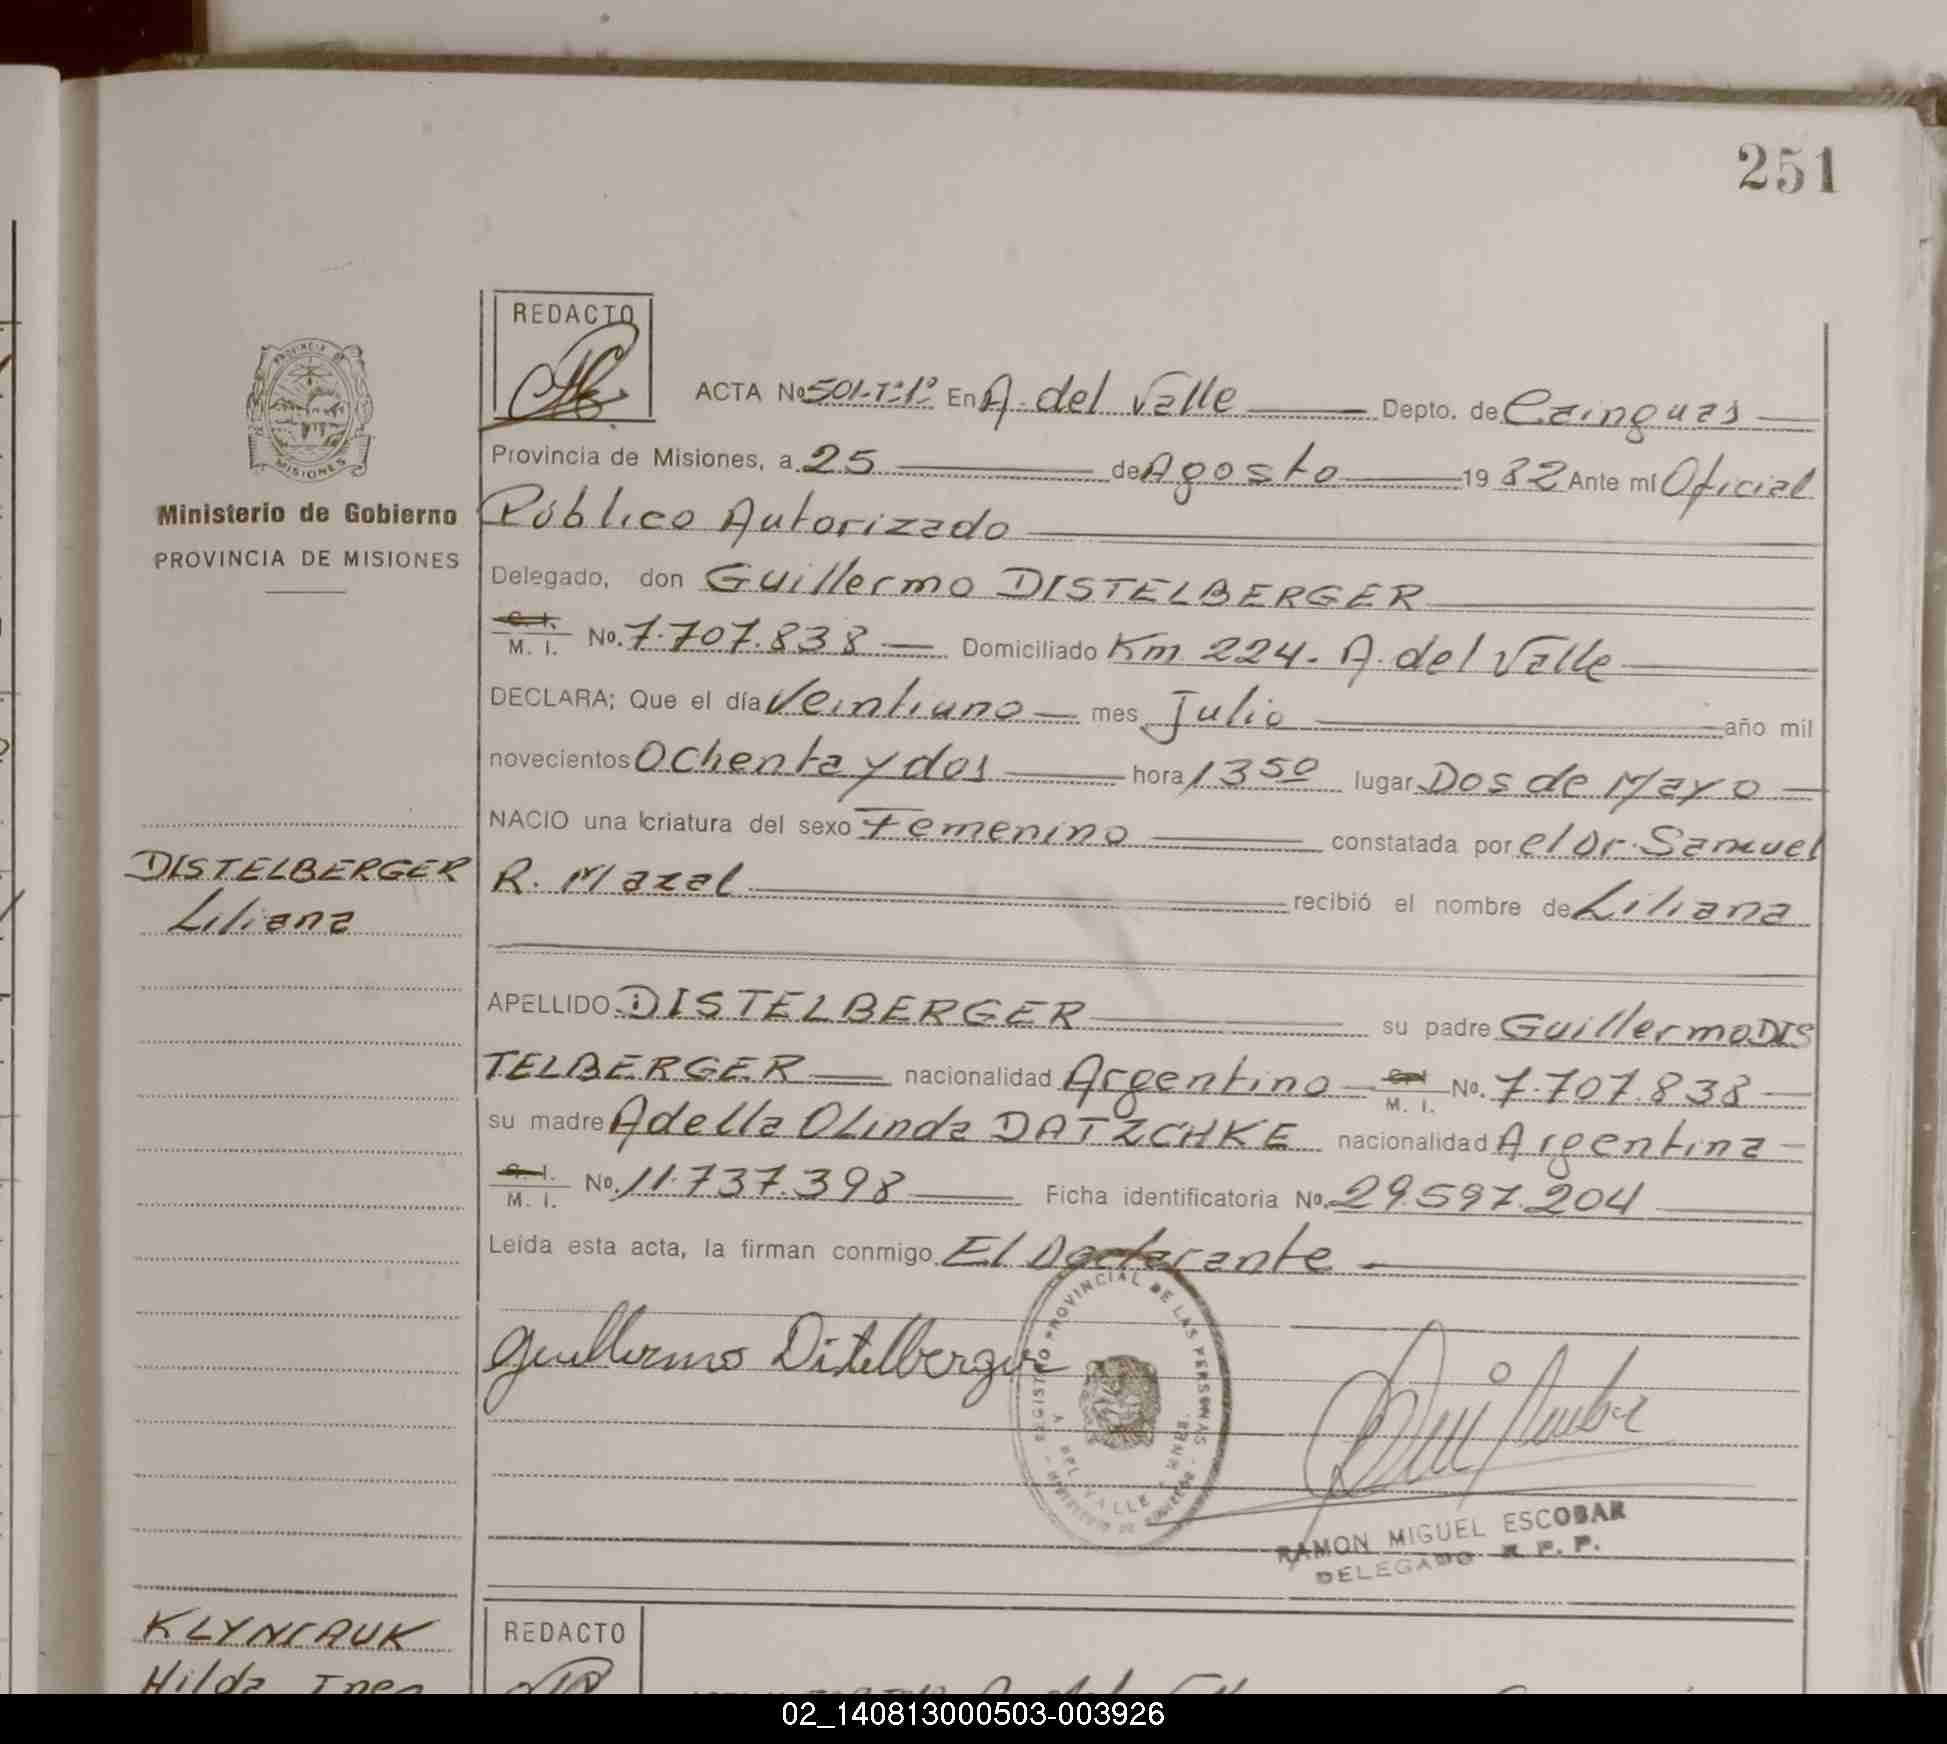 251
REDACTO
PROVINCIA DE
MISIONES
Ministerio de Gobierno
PROVINCIA DE MISIONES
ACTA No 501-T:1º En A. del Valle Depto. de Cainguas
Provincia de Misiones, a 25 de Agosto 1982 Ante mí Oficial
Público Autorizado
Delegado, don Guillermo DISTELBERGER
C. I.
M. I. No. 7.707.838 Domiciliado Km 224. A. del Valle
DECLARA; Que el día Veintiuno mes Julio año mil
novecientos Ochenta y dos hora 13 50 lugar Dos de Mayo
NACIO una criatura del sexo Femenino constatada por el Dr. Samuel
DISTELBERGER
Liliana
R. Mazal recibió el nombre de Liliana
APELLIDO DISTELBERGER su padre Guillermo DIS
TELBERGER nacionalidad Argentino C. I. M. I. No. 7.707.838
su madre Adella Olinda DATZCHKE nacionalidad Argentina
C. I.
M. I. No. 11.737.398 Ficha identificatoria No. 29.597.204
Leída esta acta, la firman conmigo El Declarante
Guillermo Distelberger
REGISTRO PROVINCIAL DE LAS PERSONAS
A DEL VALLE
RAMON MIGUEL ESCOBAR
DELEGADO R. P. P.
KLYNIAUK
Hilda Ines
REDACTO
02_140813000503-003926